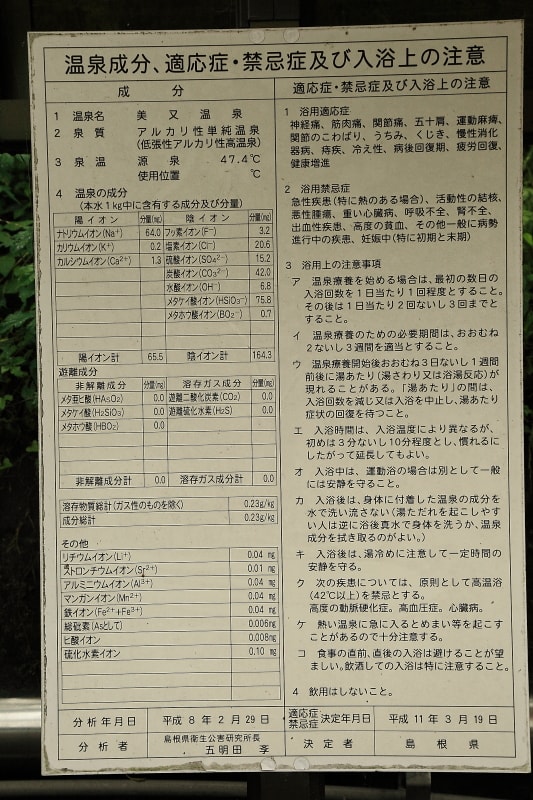 温泉成分、適応症・禁忌症及び入浴上の注意
成分
1 温泉名 美又温泉
2 泉質 アルカリ性単純温泉
(低張性アルカリ性高温泉)
3 泉温 源泉 47.4℃
使用位置 ℃
4 温泉の成分
(本水1kg中に含有する成分及び分量)
陽イオン 分量(mg) 陰イオン 分量(mg)
ナトリウムイオン(Na⁺) 64.0 フッ素イオン(F⁻) 3.2
カリウムイオン(K⁺) 0.2 塩素イオン(Cl⁻) 20.6
カルシウムイオン(Ca²⁺) 1.3 硫酸イオン(SO₄²⁻) 15.2
炭酸イオン(CO₃²⁻) 42.0
水酸イオン(OH⁻) 6.8
メタケイ酸イオン(HSiO₃⁻) 75.8
メタホウ酸イオン(BO₂⁻) 0.7
陽イオン計 65.5 陰イオン計 164.3
遊離成分
非解離成分 分量(mg) 溶存ガス成分 分量(mg)
メタ亜ヒ酸(HAsO₂) 0.0 遊離二酸化炭素(CO₂) 0.0
メタケイ酸(H₂SiO₃) 0.0 遊離硫化水素(H₂S) 0.0
メタホウ酸(HBO₂) 0.0
非解離成分計 0.0 溶存ガス成分計 0.0
溶存物質総計(ガス性のものを除く) 0.23g/kg
成分総計 0.23g/kg
その他
リチウムイオン(Li⁺) 0.04 mg
ストロンチウムイオン(Sr²⁺) 0.01 mg
アルミニウムイオン(Al³⁺) 0.04 mg
マンガンイオン(Mn²⁺) 0.04 mg
鉄イオン(Fe²⁺+Fe³⁺) 0.04 mg
総砒素(Asとして) 0.006mg
ヒ酸イオン 0.008mg
硫化水素イオン 0.10 mg
適応症・禁忌症及び入浴上の注意
1 浴用適応症
神経痛、筋肉痛、関節痛、五十肩、運動麻痺、
関節のこわばり、うちみ、くじき、慢性消化
器病、痔疾、冷え性、病後回復期、疲労回復、
健康増進
2 浴用禁忌症
急性疾患(特に熱のある場合)、活動性の結核、
悪性腫瘍、重い心臓病、呼吸不全、腎不全、
出血性疾患、高度の貧血、その他一般に病勢
進行中の疾患、妊娠中(特に初期と末期)
3 浴用上の注意事項
ア 温泉療養を始める場合は、最初の数日の
入浴回数を1日当たり1回程度とすること。
その後は1日当たり2回ないし3回までと
すること。
イ 温泉療養のための必要期間は、おおむね
2ないし3週間を適当とすること。
ウ 温泉療養開始後おおむね3日ないし1週間
前後に湯あたり(湯さわり又は浴湯反応)が
現れることがある。「湯あたり」の間は、
入浴回数を減じ又は入浴を中止し、湯あたり
症状の回復を待つこと。
エ 入浴時間は、入浴温度により異なるが、
初めは3分ないし10分程度とし、慣れるに
したがって延長してもよい。
オ 入浴中は、運動浴の場合は別として一般
には安静を守ること。
カ 入浴後は、身体に付着した温泉の成分を
水で洗い流さない(湯ただれを起こしやす
い人は逆に浴後真水で身体を洗うか、温泉
成分を拭き取るのがよい。)
キ 入浴後は、湯冷めに注意して一定時間の
安静を守る。
ク 次の疾患については、原則として高温浴
(42℃以上)を禁忌とする。
高度の動脈硬化症。高血圧症。心臓病。
ケ 熱い温泉に急に入るとめまい等を起こす
ことがあるので十分注意する。
コ 食事の直前、直後の入浴は避けることが望
ましい。飲酒しての入浴は特に注意すること。
4 飲用はしないこと。
分析年月日 平成8年2月29日 適応症禁忌症決定年月日 平成11年3月19日
分析者 島根県衛生公害研究所長 五明田 孝 決定者 島根県